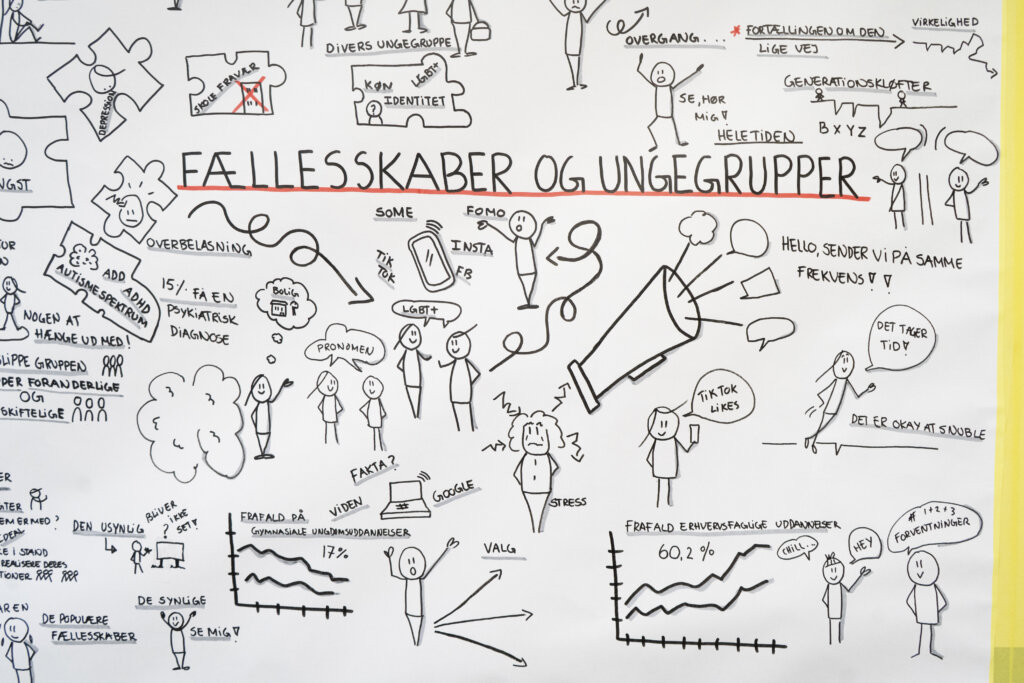 DIVERS UNGEGRUPPE
OVERGANG...
* FORTÆLLINGEN OM DEN
LIGE VEJ
VIRKELIGHED
DEPRESSION
SKOLE FRAVÆR
KØN
LGBT+
IDENTITET
SE, HØR
MIG!
HELE TIDEN
GENERATIONSKLØFTER
B X Y Z
FÆLLESSKABER OG UNGEGRUPPER
NGST
OVERBELASNING
ADD
ADHD
AUTISMESPEKTRUM
15% FÅ EN
PSYKIATRISK
DIAGNOSE
BOLIG
SOME
FOMO
TIK
TOK
INSTA
FB
LGBT+
PRONOMEN
HELLO, SENDER VI PÅ SAMME
FREKVENS!!
DET TAGER
TID!
DET ER OKAY AT SNUBLE
TIKTOK
LIKES
STRESS
NOGEN AT
HÆNGE UD MED!
SLIPPE GRUPPEN
DER FORANDERLIGE
OG
SKIFTELIGE
FAKTA?
VIDEN
GOOGLE
DEN USYNLIG
BLIVER
IKKE
SET!
?
E I STAND
REALISERE DERES
TIONER
DE POPULÆRE
FÆLLESSKABER
DE SYNLIGE
SE MIG!
FRAFALD PÅ
GYMNASIALE UNGDOMSUDDANNELSER
17%
VALG
FRAFALD ERHVERVSFAGLIGE UDDANNELSER
60,2 %
CHILL...
HEY
# 1+2+3
FORVENTNINGER